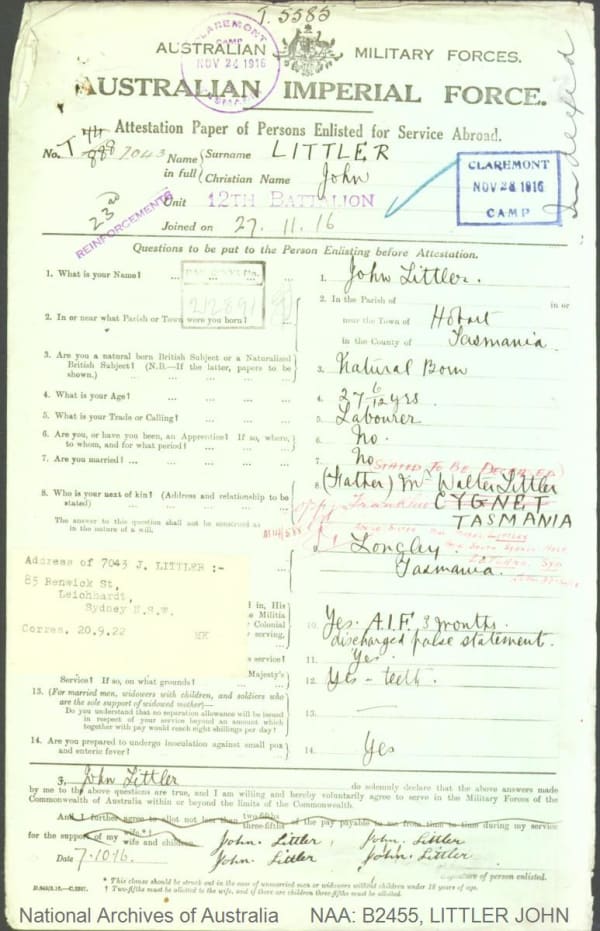 T. 5585
CLAREMONT
CAMP
NOV 24 1916
AUSTRALIAN MILITARY FORCES.
AUSTRALIAN IMPERIAL FORCE.
Attestation Paper of Persons Enlisted for Service Abroad.
No. T 7043 Name in full { Surname LITTLER
Christian Name John
Unit 12TH BATTALION
23rd
REINFORCEMENTS
Joined on 27. 11. 16
CLAREMONT
NOV 28 1916
CAMP
Questions to be put to the Person Enlisting before Attestation.
1. What is your Name? ... ... ... 1. John Littler.
2. In or near what Parish or Town were you born? 2. In the Parish of in or
near the Town of Hobart
in the County of Tasmania
3. Are you a natural born British Subject or a Naturalised
British Subject? (N.B.—If the latter, papers to be
shown.) 3. Natural Born
4. What is your Age? 4. 27 6/12 yrs.
5. What is your Trade or Calling? 5. Labourer
6. Are you, or have you been, an Apprentice? If so, where,
to whom, and for what period? 6. No.
7. Are you married? 7. No
(STATED TO BE DECEASED)
8. Who is your next of kin? (Address and relationship to be
stated) 8. (Father) Mr Walter Littler
Franklin CYGNET
TASMANIA
The answer to this question shall not be construed as
in the nature of a will.
Longley
Tasmania.
Address of 7043 J. LITTLER :-
85 Renwick St,
Leichhardt,
Sydney N.S.W.
Corres. 20.9.22 MK
in, His
Militia
Colonial
serving,
10. Yes. A.I.F. 3 months.
discharged false statement.
service?
11. Yes.
Majesty's
Service? If so, on what grounds? 12. Yes – teeth.
13. (For married men, widowers with children, and soldiers who
are the sole support of widowed mother)—
Do you understand that no separation allowance will be issued
in respect of your service beyond an amount which
together with pay would reach eight shillings per day? 13. —
14. Are you prepared to undergo inoculation against small pox
and enteric fever? 14. Yes
I, John Littler do solemnly declare that the above answers made
by me to the above questions are true, and I am willing and hereby voluntarily agree to serve in the Military Forces of the
Commonwealth of Australia within or beyond the limits of the Commonwealth.
And I further agree to allot not less than two-fifths three-fifths of the pay payable to me from time to time during my service
for the support of my wife*† wife and children. John. Littler, John. Littler
Date 7.10.16. John. Littler John. Littler
Signature of person enlisted.
* This clause should be struck out in the case of unmarried men or widowers without children under 18 years of age.
† Two-fifths must be allotted to the wife, and if there are children three-fifths must be allotted.
National Archives of Australia NAA: B2455, LITTLER JOHN